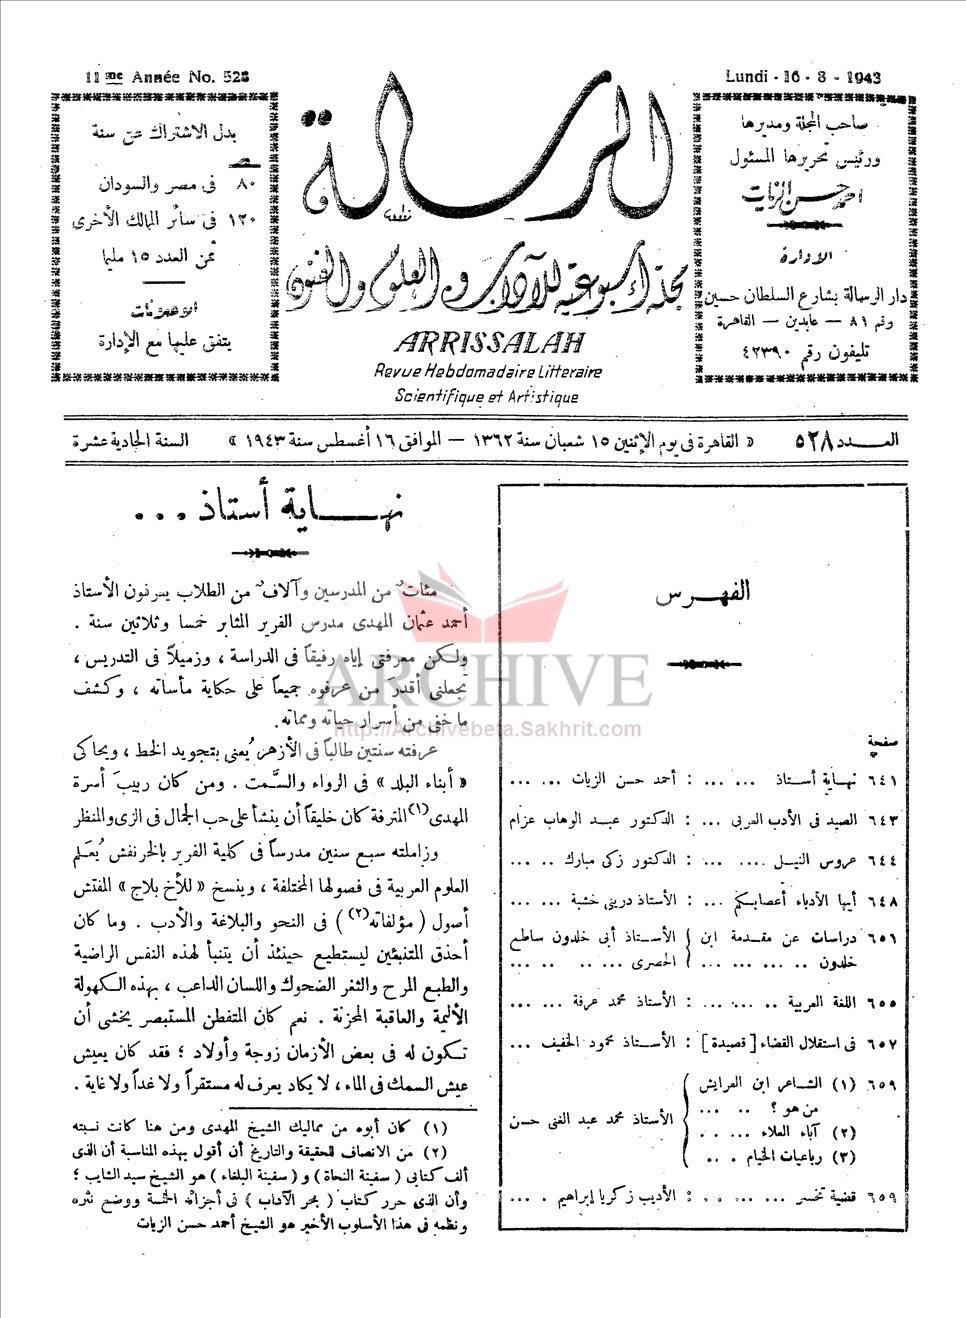 11me Année No. 528
Lundi - 16 - 8 - 1943
صاحب المجلة ومديرها
ورئيس تحريرها المسئول
احمد حسن الزيات
الادارة
دار الرسالة بشارع السلطان حسين
رقم ٨١ — عابدين — القاهرة
تليفون رقم ٤٢٣٩٠
الرسالة
مجلة أسبوعية للآداب والعلوم والفنون
ARRISSALAH
Revue Hebdomadaire Litteraire
Scientifique et Artistique
بدل الاشتراك عن سنة
٨٠ فى مصر والسودان
١٢٠ فى سائر الممالك الأخرى
ثمن العدد ١٥ مليما
الاعلانات
يتفق عليها مع الإدارة
العـــدد ٥٢٨ « القاهرة فى يوم الإثنين ١٥ شعبان سنة ١٣٦٢ — الموافق ١٦ أغسطس سنة ١٩٤٣ » السنة الحادية عشرة
الفهـرس
صفحة
٦٤١ نهـاية أستـاذ ... ... : أحمد حسن الزيات ... ...
٦٤٣ الصيد فى الأدب العربى ... : الدكتور عبـد الوهاب عزام
٦٤٤ عروس النيـل .... ... : الدكتور زكى مبارك .. ...
٦٤٨ أيها الأدباء أعصابكم ... : الأستاذ درينى خشبة ... ...
٦٥١ دراسات عن مقـدمة ابن { الأســتاذ أبى خلدون ساطع
خلدون .. ... ... ... { الحصرى ... .. .. ...
٦٥٥ اللغة العربية .. ... ... : الأستاذ محمد عرفة ... ...
٦٥٧ فى استقلال القضاء [ قصيدة ] : الأستـاذ محمود الخفيف ...
٦٥٩ (١) الشـاعر ابن العرايش
من هو ؟ .. ... ...
(٢) آباء العلاء ... .. ..
(٣) رباعيات الخيام . .. ..
الأستاذ محمد عبد الغنى حسن
٦٥٩ قضية تخسر ... ... .. . : الأديب زكريا إبراهيم . ...
نهـــاية أستاذ ...
مئاتٌ من المدرسين وآلافٌ من الطلاب يعرفون الأستاذ
أحمد عثمان المهدى مدرس الفرير المثابر خمسا وثلاثين سنة .
ولكن معرفتى إياه رفيقاً فى الدراسة ، وزميلاً فى التدريس ،
تجعلنى أقدرَ من عرفوه جميعاً على حكاية مأساته ، وكشف
ما خفى من أسرار حياته ومماته.
عرفته سنتين طالباً فى الأزهر يُعنى بتجويد الخط ، ويحاكى
« أبناء البلد » فى الرواء والسَّمت . ومن كان ربيبَ أسرة
المهدى(١) المترفة كان خليقاً أن ينشأ على حب الجمال فى الزى والمنظر
وزاملته سبع سنين مدرساً فى كلية الفرير بالخرنفش يُعلِم
العلوم العربية فى فصولها المختلفة ، وينسخ « للأخ بلاج » المفتش
أصول ( مؤلفاته(٢) ) فى النحو والبلاغة والأدب . وما كان
أحذق المتنبئين ليستطيع حينئذ أن يتنبأ لهذه النفس الراضية
والطبع المرح والثغر الضحوك واللسان الداعب ، بهذه الكهولة
الأليمة والعاقبة المحزنة . نعم كان المتفطن المستبصر يخشى أن
تكون له فى بعض الأزمان زوجة وأولاد ؛ فقد كان يعيش
عيش السمك فى الماء ، لا يكاد يعرف له مستقراً ولا غداً ولا غاية .
(١) كان أبوه من مماليك الشيخ المهدى ومن هنا كانت نسبته
(٢) من الانصاف للحقيقة والتاريخ أن أقول بهذه المناسبة أن الذى
ألف كتابى ( سفينة النحاة ) و ( سفينة البلغاء ) هو الشيخ سيد الشايب ؛
وأن الذى حرر كتاب ( بحر الآداب ) فى أجزائه الخمسة ووضع نثره
ونظمه فى هذا الأسلوب الأخير هو الشيخ أحمد حسن الزيات
ARCHIVE
http://Archivebeta.Sakhrit.com